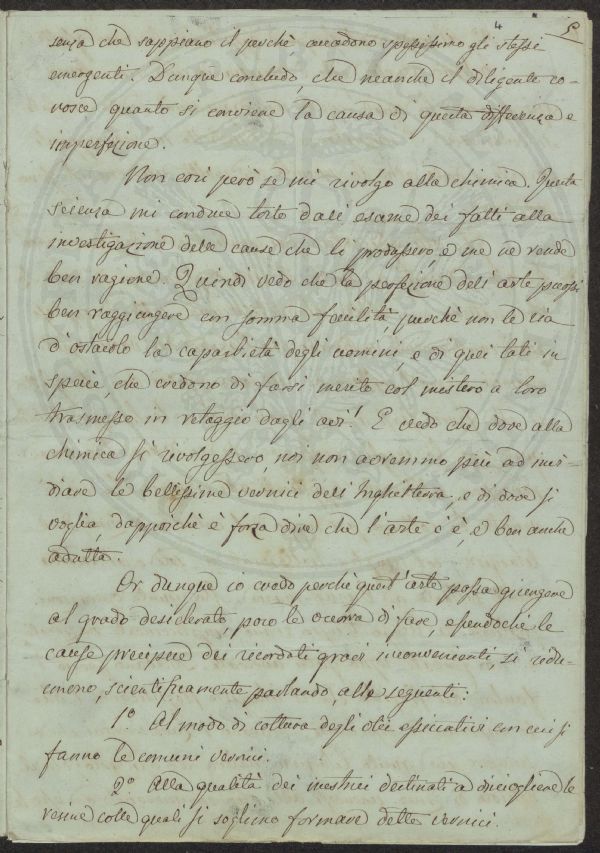 4 5
senza che sappiano il perchè, accadono spessissimo gli stessi
emergenti. Dunque conchiudo, che neanche il diligente co-
nosce quanto si conviene la causa di questa differenza e
imperfezione.
Non così però se mi rivolgo alla chimica. Questa
scienza mi conduce tosto dall'esame dei fatti alla
investigazione delle cause che li produssero, e me ne rende
ben ragione. Quindi vedo che la perfezione dell'arte puossi
ben raggiungere con somma facilità, purchè non le sia
d'ostacolo la caparbietà degli uomini, e di quei tali in
specie, che credono di farsi merito col mistero a loro
trasmesso in retaggio dagli avi! E vedo che dove alla
chimica si rivolgessero, noi non avremmo più ad invi-
diare le bellissime vernici dell'Inghilterra, e di dove si
voglia, dappoichè è forza dire che l'arte c'è, e ben anche
adulta.
Or dunque io credo perchè quest'arte possa giungere
al grado desiderato, poco le occorra di fare, essendochè le
cause precipue dei ricordati gravi inconvenienti, si redu-
cono, scientificamente parlando, alle seguenti:
1º. Al modo di cottura degli olei essiccativi con cui si
fanno le comuni vernici.
2º. Alla qualità dei mestrui destinati a disciogliere le
resine colle quali si sogliono formare dette vernici.